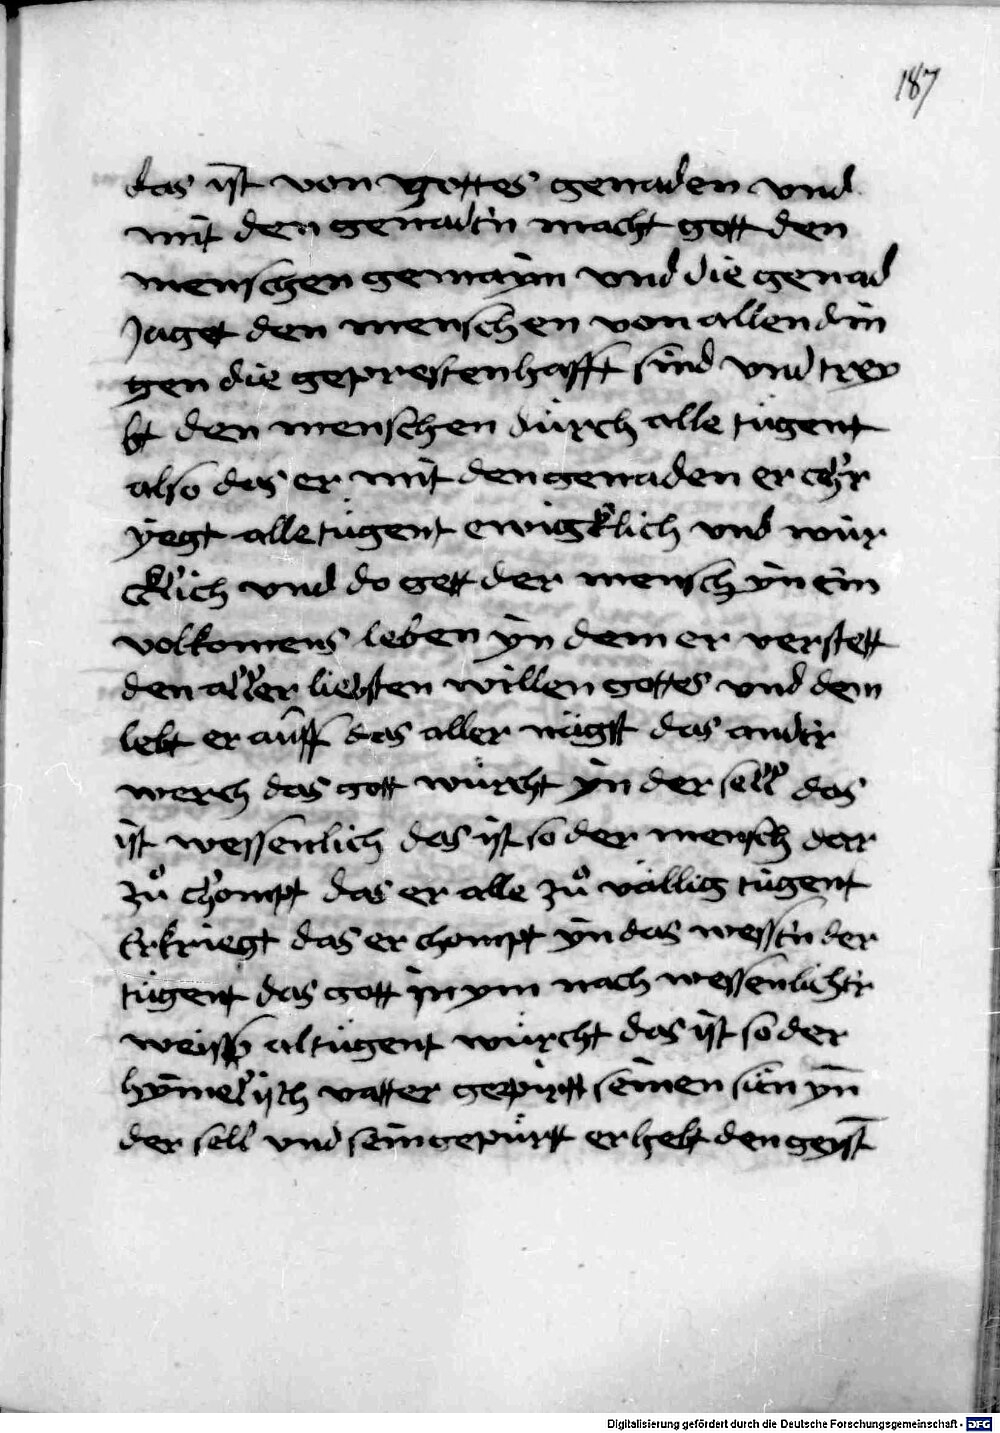 187
das ist von gottes genaden vnd
mit den genaden macht gott den
menschen gemayn vnd die genad
Jaget den menschen von allen din
gen die geprestenhafft sind vnd trey
bt den menschen dürch alle tügent
also das er mit den genaden er chr
yegt alle tügent ewigklich vnd wür
cklich vnd do gett der mensch yn ein
volkomens leben yn dem er verstett
den aller liebsten willen gottes vnd dem
lebt er auff das aller nägst das ander
werch das gott würcht yn der sell das
ist wessenlich das ist so der mensch dar
zů chompt das er alle zů vällig tügent
Erkriegt das er chompt yn das wessen der
tügent das gott jn ym nach wessenlicher
weiss al tügent würcht das ist so der
hymelisch vatter gepirtt seinen sün yn
der sell vnd sein gepürt er hebt den geyst
Digitalisierung gefördert durch die Deutsche Forschungsgemeinschaft - DFG